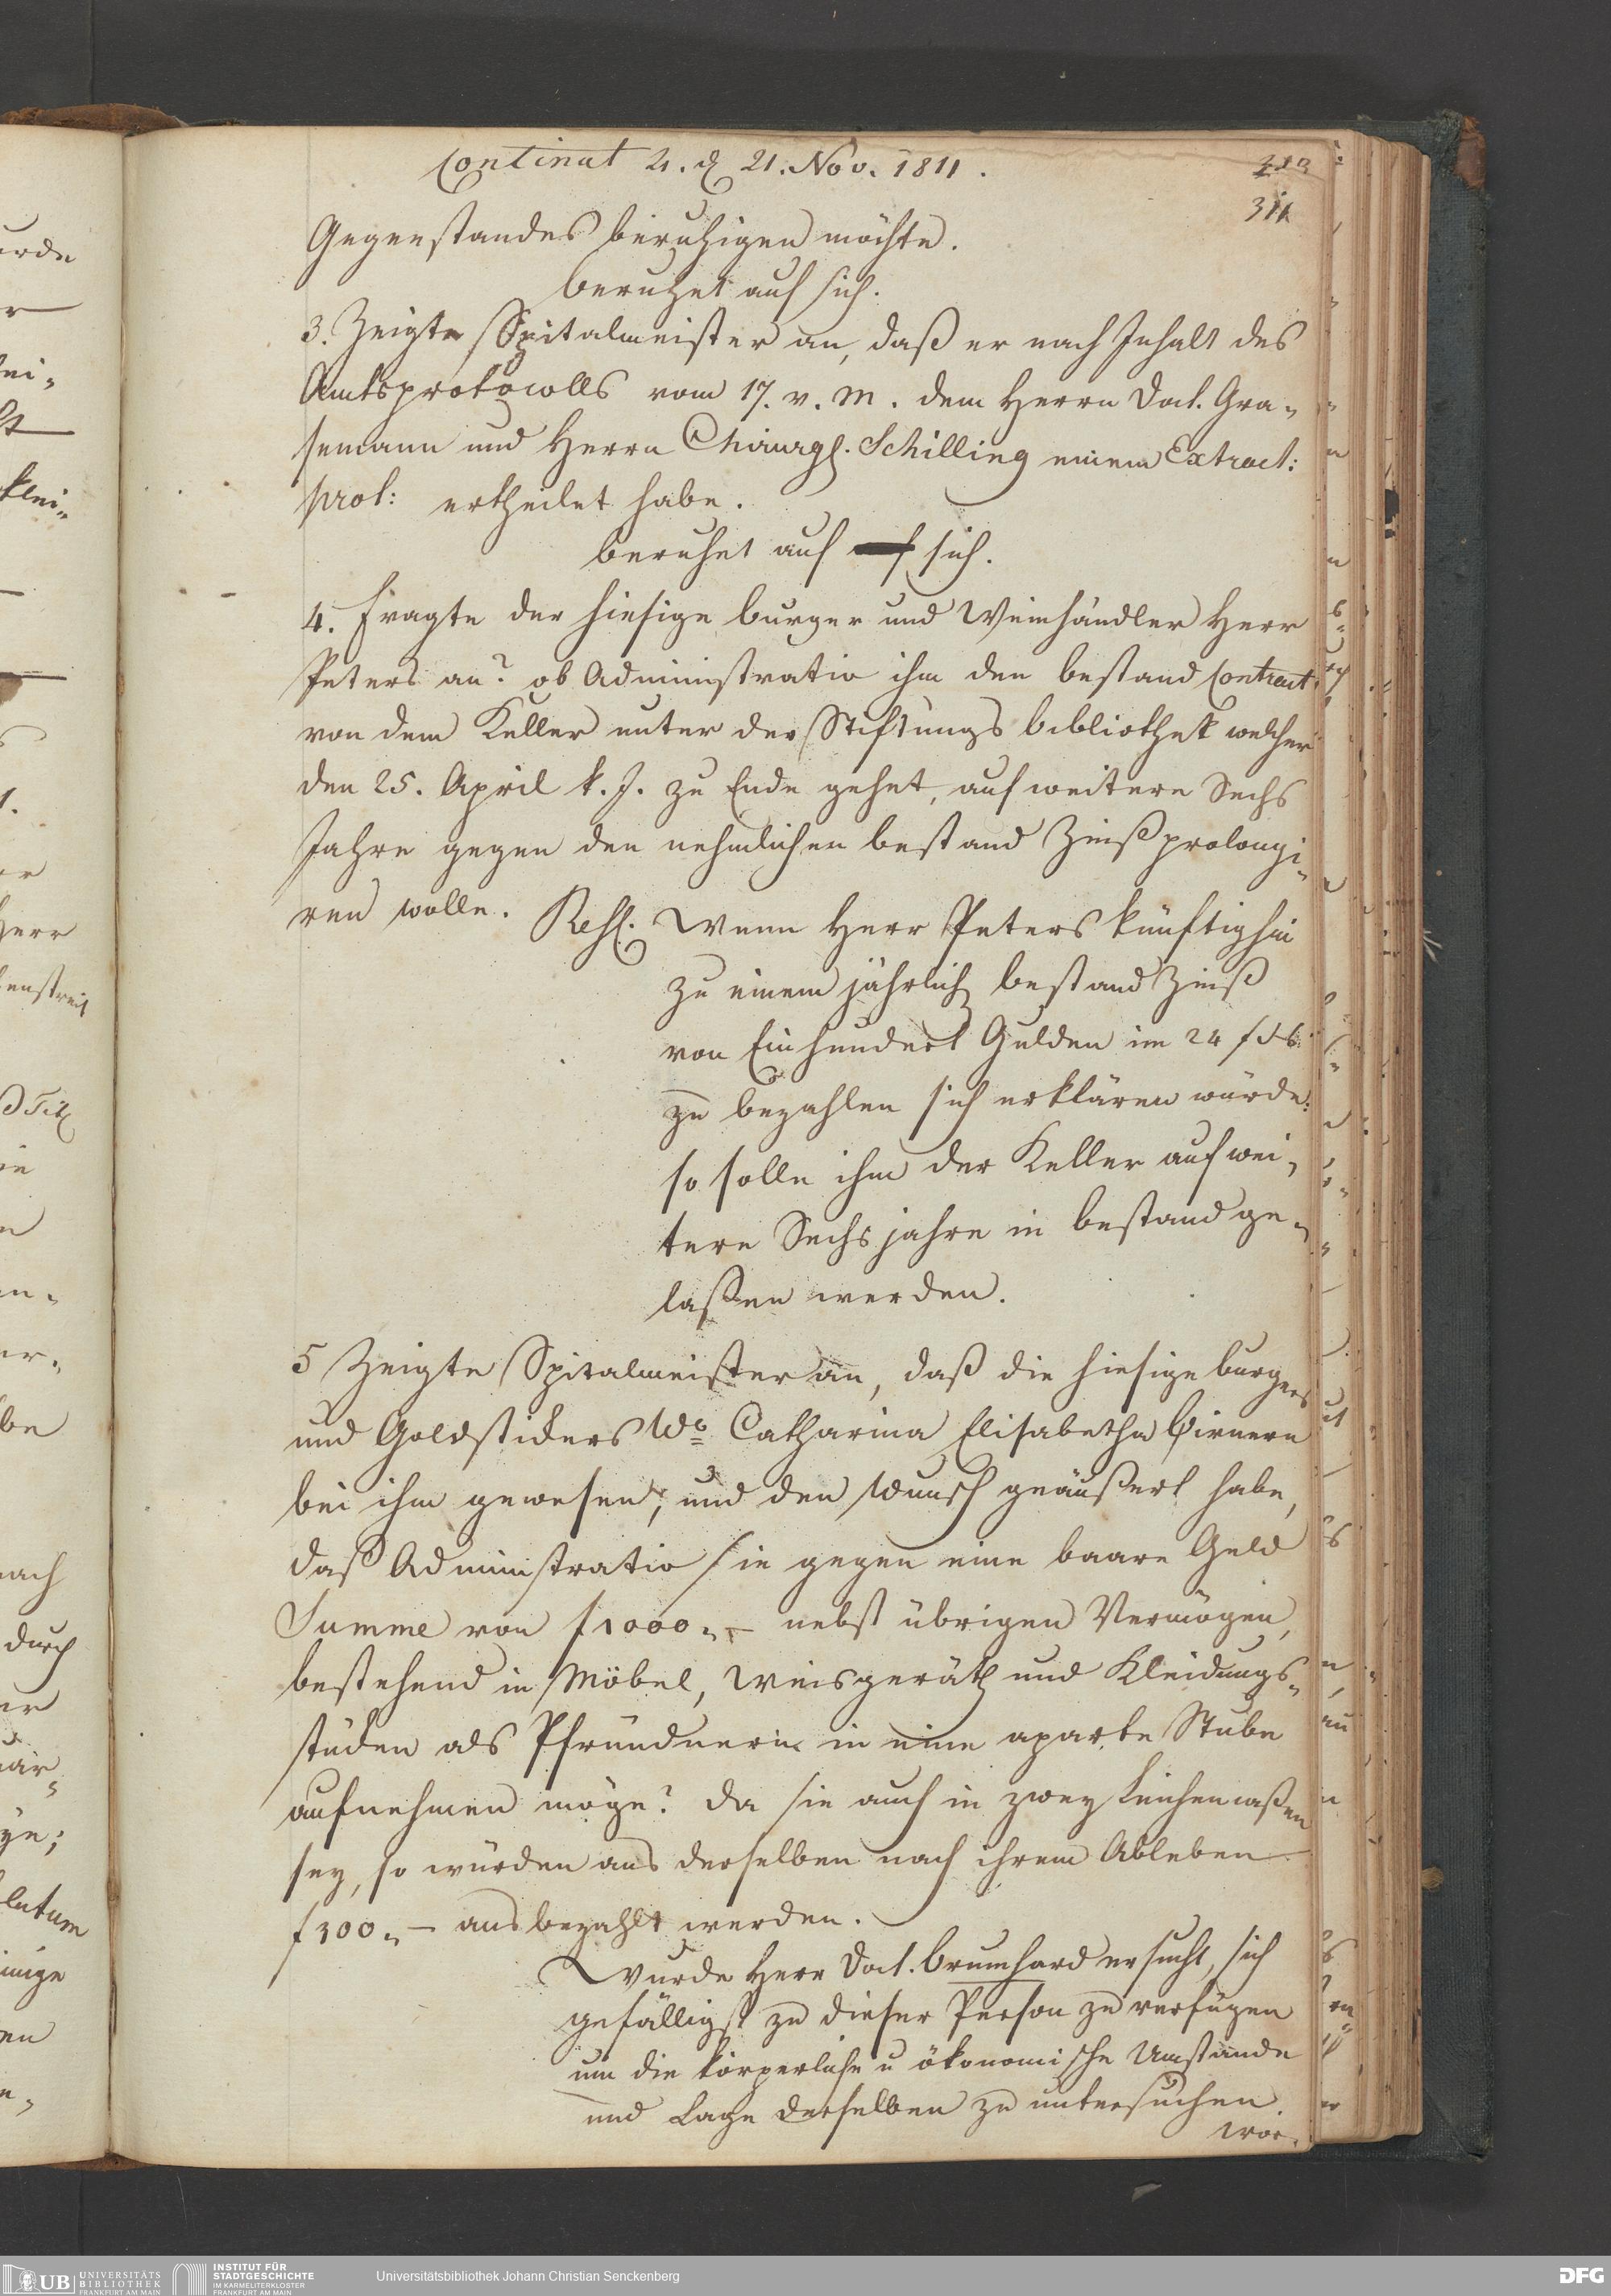 Continuat 4. d 21. Nov. 1811.
311
Gegenstandes beruhigen möchte.
beruhet auf sich.
3. Zeigte Spitalmeister an, daß er nach Inhalt des
Amtsprotocolls vom 17. v. M. dem Herrn Doct. Gra-
semann und Herrn Chirurg. Schilling einem Extract:
prot: ertheilet habe.
beruhet auf sich.
4. Fragte der hiesige burger und Weinhändler Herr
Peters an? ob Administratio ihm den bestand Contract
von dem Keller unter der Stiftungs bibliothek welcher
den 25. April k. J. zu Ende gehet, auf weitere Sechs
Jahre gegen den nehmlichen bestand Zinß prolongi-
ren wolle. Resl. Wenn Herr Peters künftighin
zu einem jährlich bestand Zinß
von Einhundert Gulden im 24 f
zu bezahlen sich erklären würde:
so solle ihm der Keller auf wei-
tere Sechs jahre in bestand ge-
lassen werden.
5 Zeigte Spitalmeister an, daß die hiesige burgers
und Goldstickers Wb Catharina Elisabetha Birnern
bei ihm gewesen, und den Wunsch geäußert habe,
daß Administratio sie gegen eine baare Geld
Summe von f 1000.- nebst übrigen Vermögen,
bestehend in Möbel, Weisgeräth und Kleidungs-
stücken als Pfründnerin in eine aparte Stube
aufnehmen möge? da sie auch in zwey Leichencaßen
sey, so würden aus derselben nach ihrem Ableben
f 300.- ausbezahlt werden.
Wurde Herr Doct. Brumhard ersucht, sich
gefälligst zu dieser Person zu verfügen
um die körperliche u ökonomische Umstände
und Lage derselben zu untersuchen
wor-
UB UNIVERSITÄTS
BIBLIOTHEK
FRANKFURT AM MAIN
INSTITUT FÜR
STADTGESCHICHTE
IM KARMELITERKLOSTER
FRANKFURT AM MAIN
Universitätsbibliothek Johann Christian Senckenberg
DFG